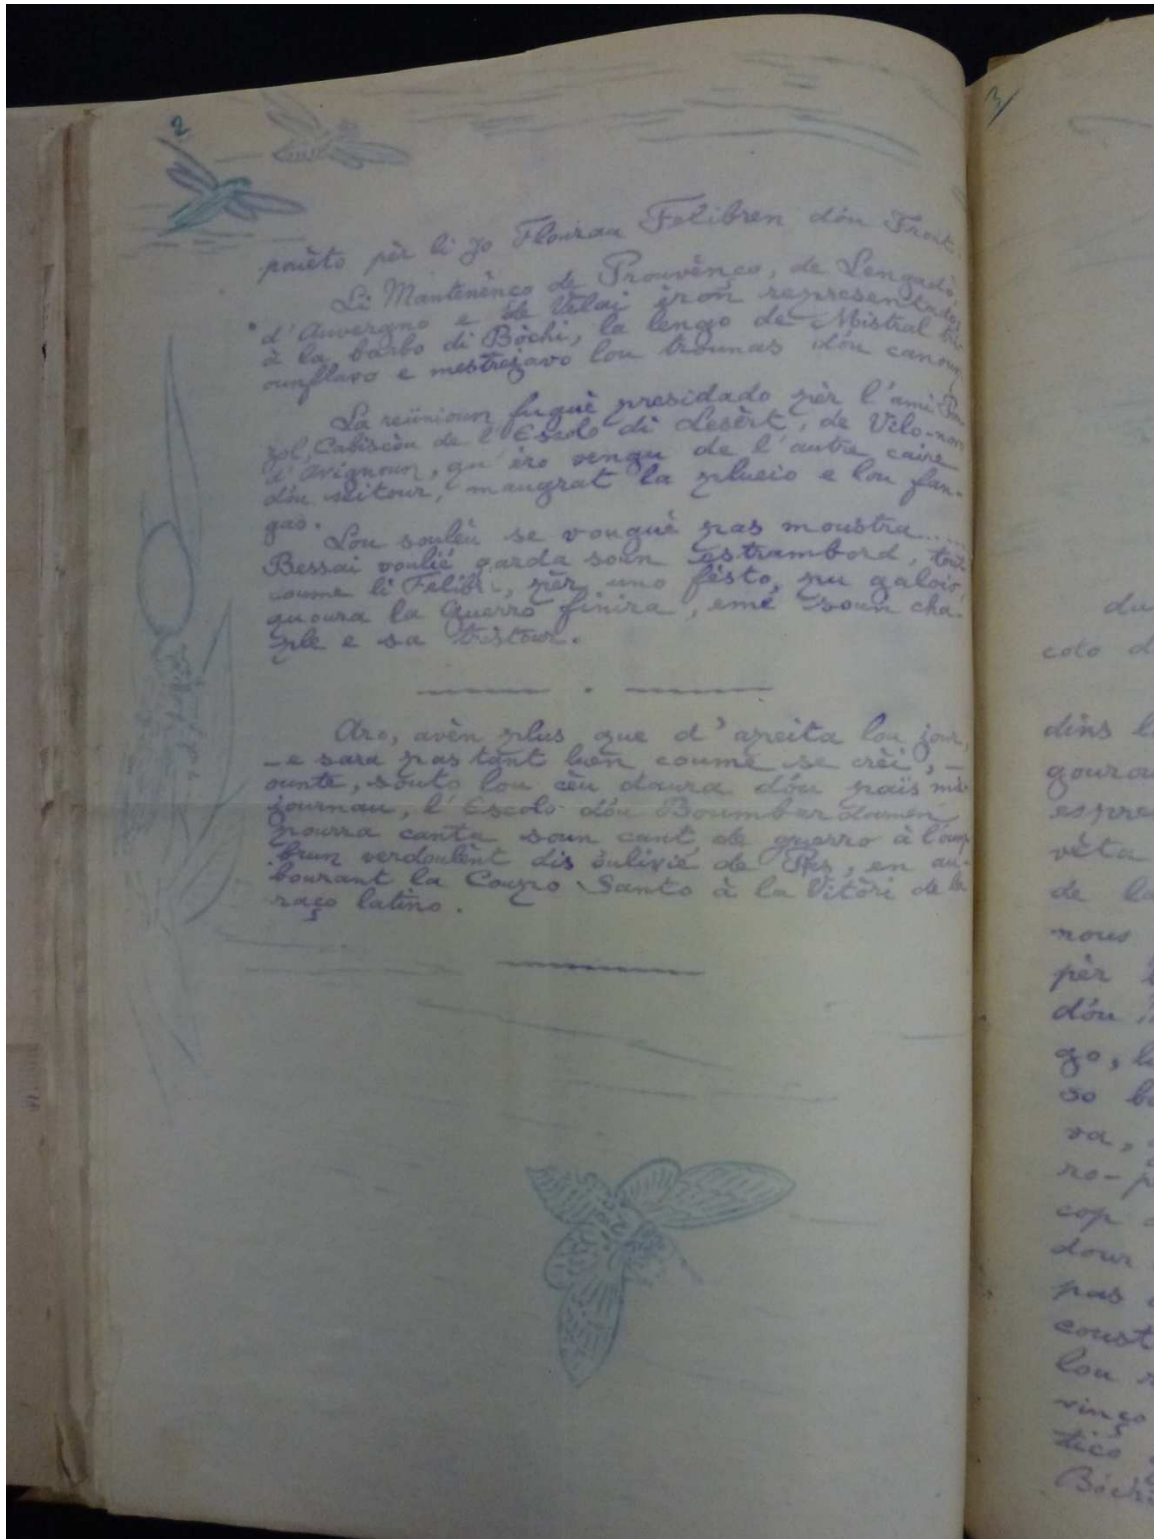 2
pouèto pèr li Jo Flourau Felibren dóu Front.
Li Mantenènço de Prouvènço, de Lengadò,
d'Auvergno e de Velai èron representado,
à la barbo di Bòchi, la lengo de Mistral
ounflavo e mestrejavo lou trounas dóu canoun,
La reünioun fuguè presidado pèr l'ami
zol, Cabiscòu de l'Escolo di Lesèrt, de Vilo-novo
d'Avignoun, qu'èro vengu de l'autre caire
dóu seitour, maugrat la plueio e lou fan-
gas.
Lou soulèu se vouguè pas moustra......
Bessai voulié garda soun estrambord, tout
coume li Felibre, pèr uno fèsto, pu galoio,
quoura la Guerro finira, emé soun cha-
ple e sa tristour.
Aro, avèn plus que d'apeita lou jour,
- e sara pas tant luen coume se crèi, -
ounte, souto lou cèu daura dóu païs mie-
journau, l'Escolo dóu Boumbardamen
pourra canta soun cant de guerro à l'oum-
brun verdoulènt dis óulivié de Pas, en au-
bourant la Coupo Santo à la Vitòri de la
raço latino.
3
du
colo d
dins l
gourau
espre
vèta
de la
nous
pèr
dóu
go, l
so b
va,
ro-p
cop
dour
pas
coust
lou
vinço
tico
Bòchi